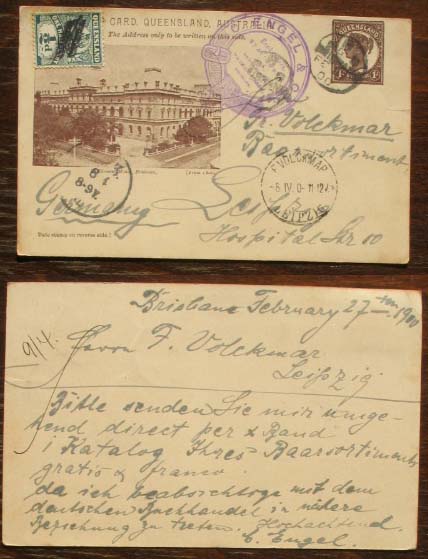 CARD, QUEENSLAND, AUSTRALIA
The Address only to be written on this side.
QUEENSLAND
ENGEL & C
QUEENSLAND
Volckmar
Baarsortiment
F. VOLCKMAR
LEIPZIG
Germany
Leipzig
Hospital Str 10
Brisbane February 27 1900
9/4.
Herrn F. Volckmar
Leipzig
Bitte senden Sie mir umge-
hend direct per x Band
1 Katalog Ihres Baarsortiments
gratis & franco
da ich beabsichtige mit dem
deutschen Buchhandel in nähere
Beziehung zu treten. Hochachtend
E. Engel.